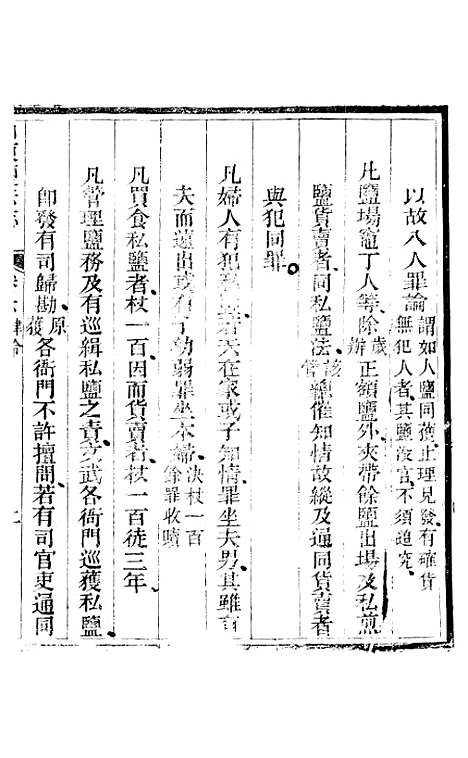 以故入人罪論謂如人鹽同獲止理見發有確貨無犯人者其鹽沒官不須追究
凡鹽場竈丁人等除歲辦正額鹽外夾帶餘鹽出場及私煎
鹽貨賣者同私鹽法該管總催知情故縱及通同貨賣者
與犯同罪
凡婦人有犯私鹽若夫在家或子知情罪坐夫男其雖有
夫而遠出或有子幼弱罪坐本婦決杖一百餘罪收贖
凡買食私鹽者杖一百因而貨賣者杖一百徒三年
凡管理鹽務及有巡緝私鹽之責文武各衙門巡獲私鹽
卽發有司歸勘原獲各衙門不許擅問若有司官吏通同
律令